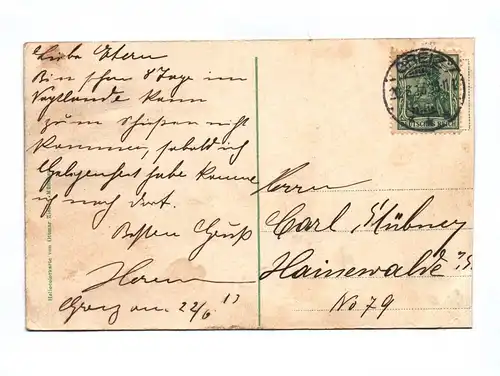 Liebe Eltern
Bin schon 8 Tage im
Vogtlande kann
zum Schießen nicht
kommen, sobald ich
Gelegenheit habe komme
ich nach dort.
Besten Gruß
Greiz am 22/6 13
GREIZ
DEUTSCHES REICH
Herrn
Carl Hübner
Hainewalde
No 79
von Ottmar